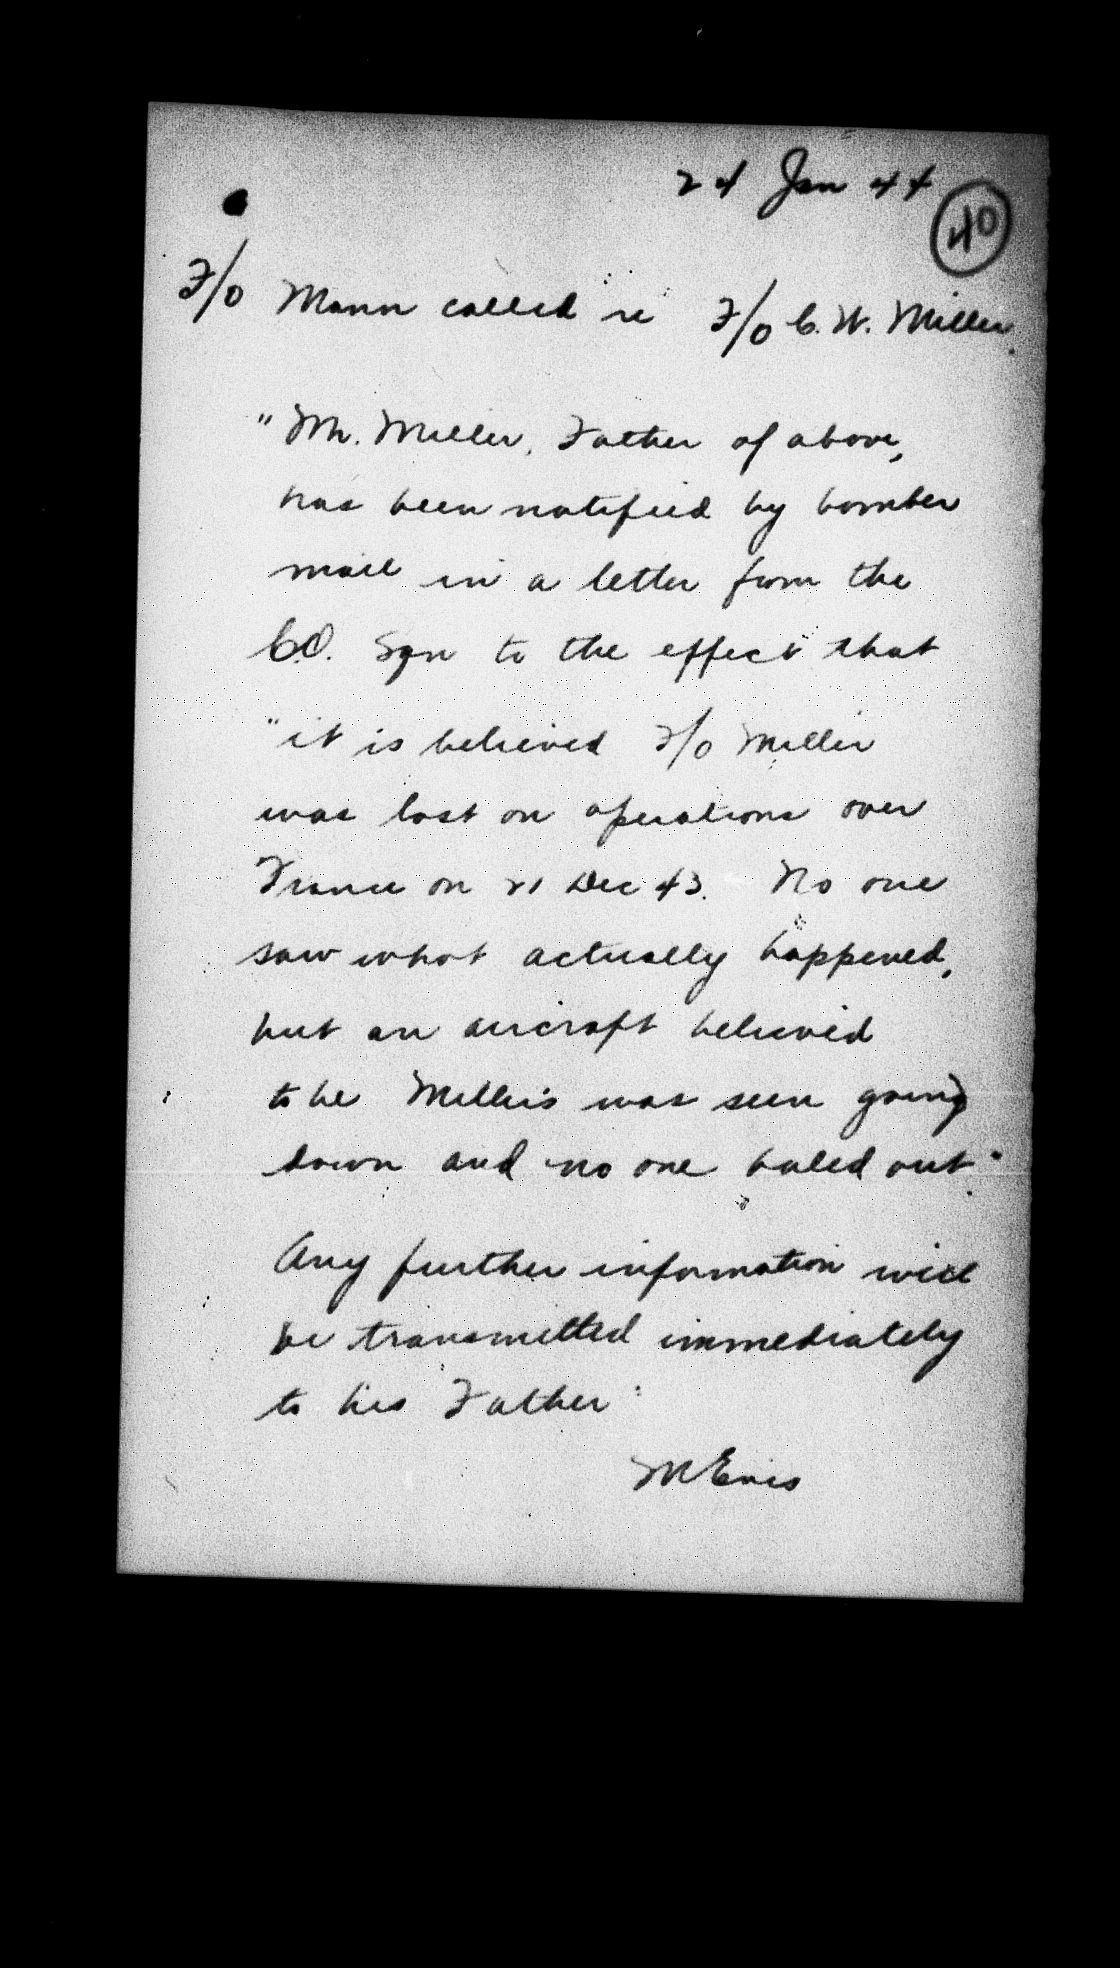 24 Jan 44
40
F/O Mann called re F/O C. W. Miller.
"Mr. Miller, Father of above,
has been notified by bomber
mail in a letter from the
C.O. Sqn to the effect that
"it is believed F/O Miller
was lost on operations over
France on 21 Dec 43. No one
saw what actually happened,
but an aircraft believed
to be Miller's was seen going
down and no one baled out."
Any further information will
be transmitted immediately
to his Father